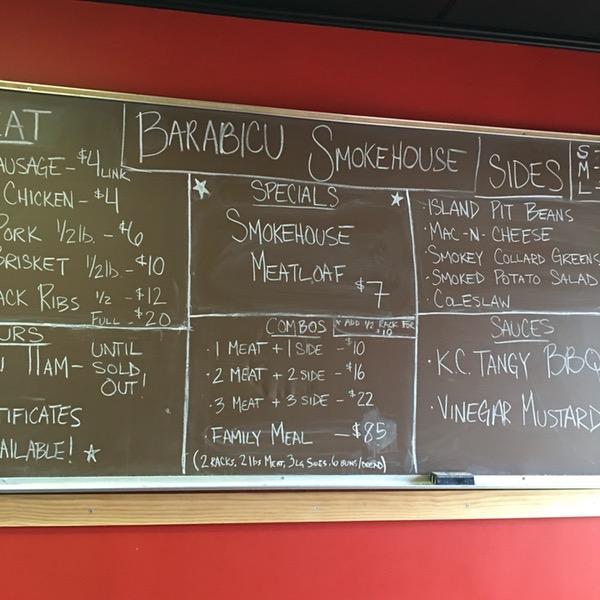 BARABICU SMOKEHOUSE
EAT
AUSAGE - $4 LINK
CHICKEN - $4
PORK 1/2 lb. - $6
BRISKET 1/2 lb. - $10
ACK RIBS 1/2 - $12
FULL - $20
URS
11AM - UNTIL
SOLD
OUT!
TIFICATES
AILABLE!
SPECIALS
SMOKEHOUSE
MEATLOAF
$7
COMBOS
* ADD 1/2 RACK FOR
$10
· 1 MEAT + 1 SIDE - $10
· 2 MEAT + 2 SIDE - $16
· 3 MEAT + 3 SIDE - $22
· FAMILY MEAL - $85
(2 RACKS, 2 lbs MEAT, 3 LG SIDES, 6 BUNS/BREAD)
SIDES
S -
M -
L -
· ISLAND PIT BEANS
· MAC-N-CHEESE
· SMOKEY COLLARD GREENS
· SMOKED POTATO SALAD
· COLESLAW
SAUCES
· K.C. TANGY BBQ
· VINEGAR MUSTARD